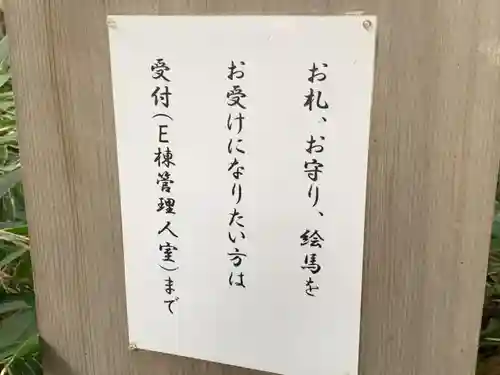 お札、お守り、絵馬を
お受けになりたい方は
受付(E棟管理人室)まで